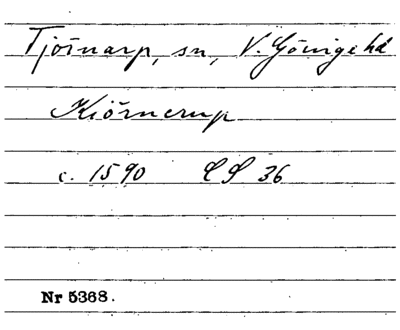 Tjörnarp, sn, V. Göinge hd
Kiörnerup
c. 1590 LS 36
Nr 5368.